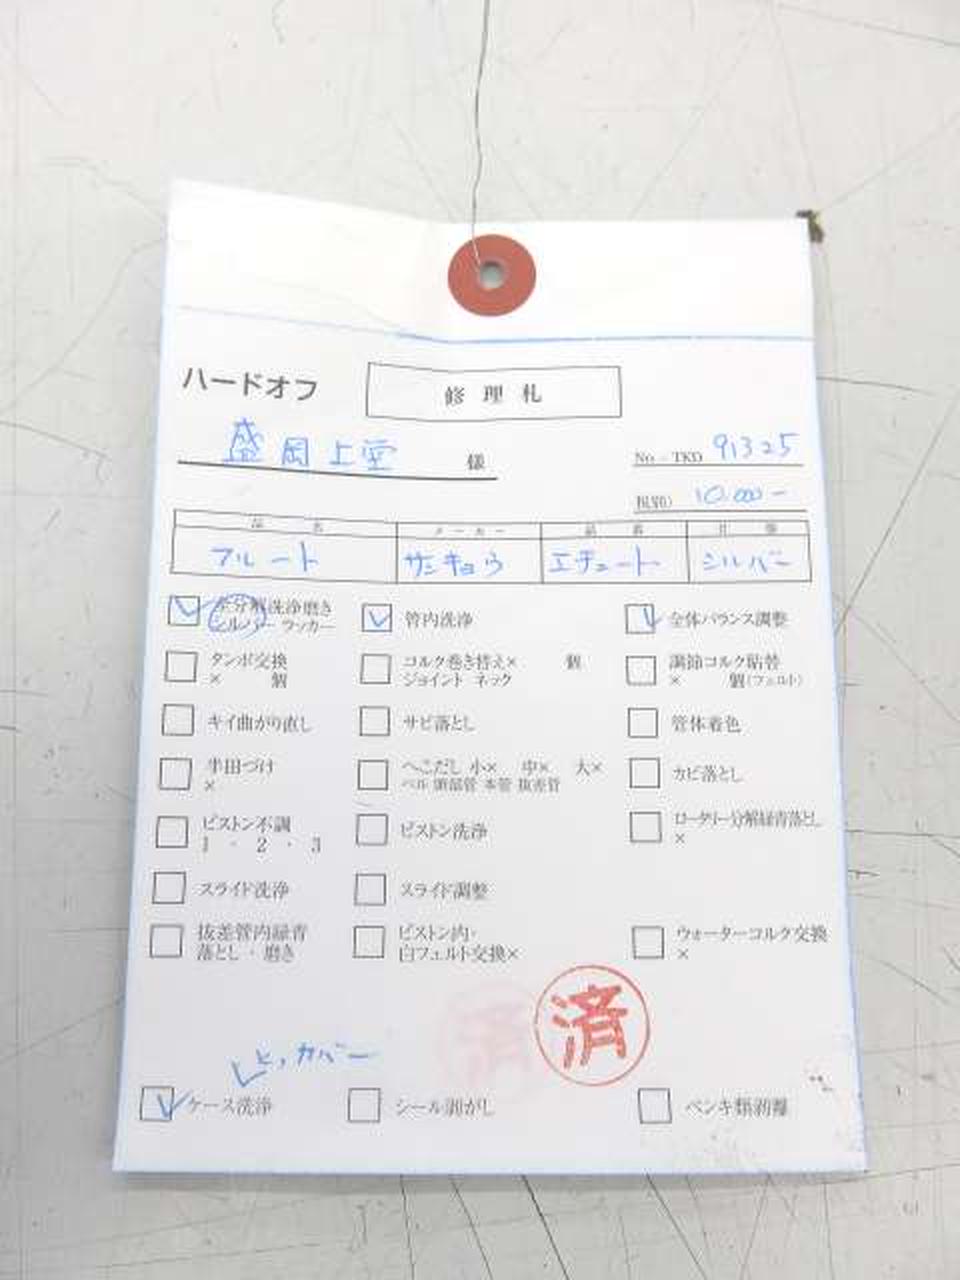 ハードオフ 修理札
盛岡上堂 様 No.-TKD 91325
税別) 10.000-
品名 メーカー 品番 仕様
フルート サンキョウ エチュード シルバー
全分解洗浄磨き 管内洗浄 全体バランス調整
シルバー ラッカー
タンポ交換 コルク巻き替え× 個 調節コルク貼替
× 個 ジョイント ネック × 個(フェルト)
キイ曲がり直し サビ落とし 管体着色
半田づけ へこだし 小× 中× 大× カビ落とし
× ベル 頭部管 本管 抜差管
ピストン不調 ピストン洗浄 ロータリー分解緑青落とし
1・2・3 ×
スライド洗浄 スライド調整
抜差管内緑青 ピストン内・ ウォーターコルク交換
落とし・磨き 白フェルト交換× ×
済
と、カバー
ケース洗浄 シール剥がし ペンキ類剥離